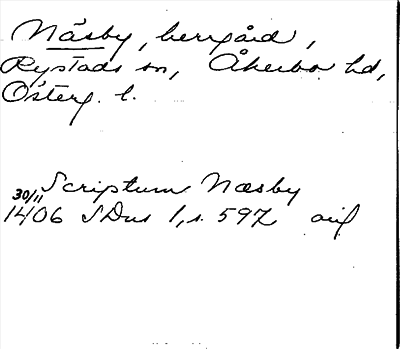 Näsby, herrgård,
Rystads sn, Åkerbo hd,
Österg. l.
Scriptum Næsby
30/11
1406 SDns 1, s. 597 orig